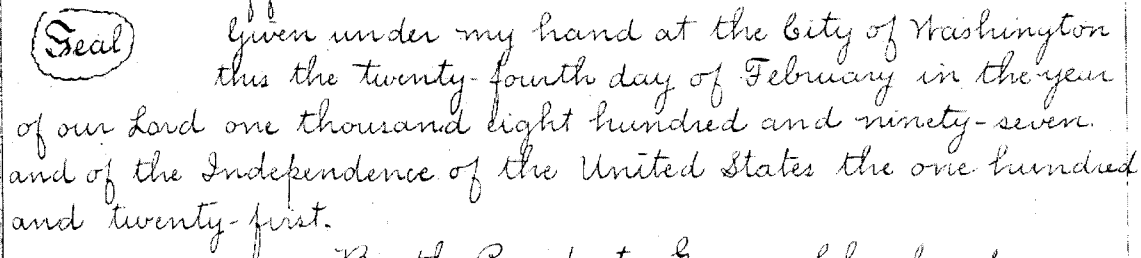 Seal Given under my hand at the City of Washington
this the twenty-fourth day of February in the year
of our Lord one thousand eight hundred and ninety-seven.
and of the Independence of the United States the one hundred
and twenty-first.
By the President: Grover